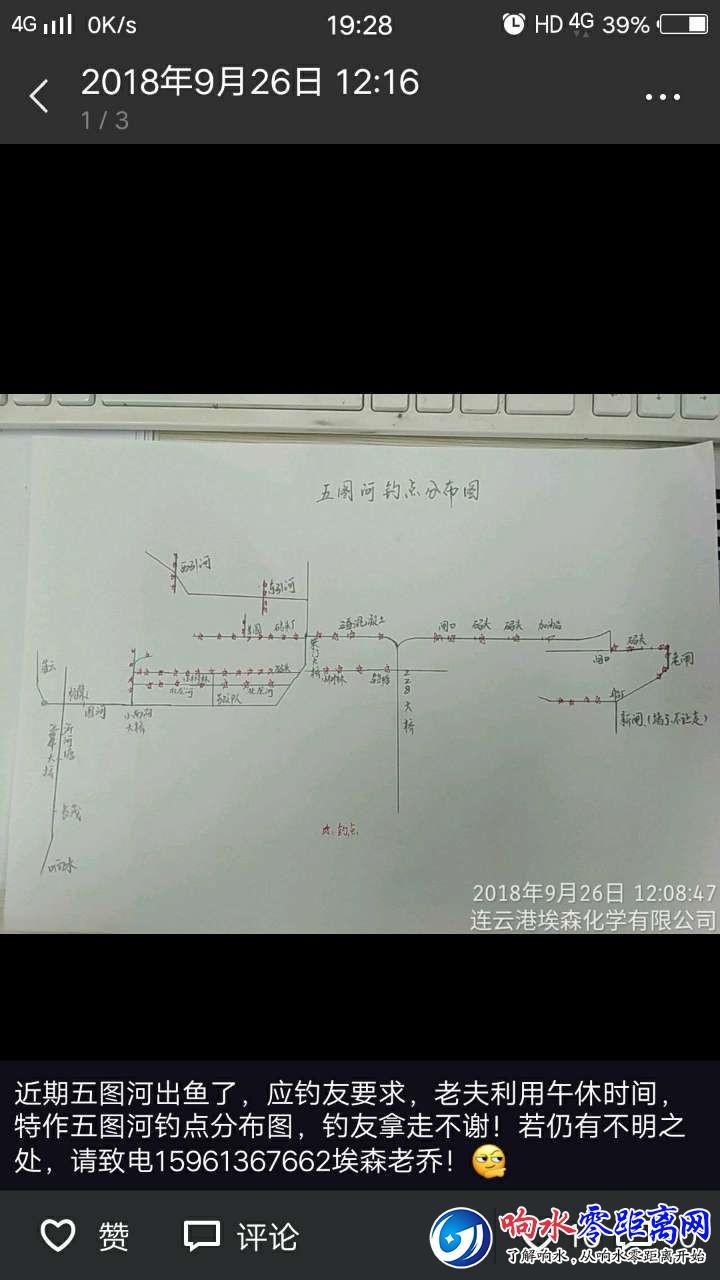 4G 0K/s 19:28 HD 4G 39%
2018年9月26日 12:16
1 / 3
五图河钓点分布图
西引河
东引河
闸口 码头 码头 加油站
码头
闸口
老闸
码头
图河
小南河大桥
228大桥
新闸(堵了不让走)
长茂
响水
钓点
2018年9月26日 12:08:47
连云港埃森化学有限公司
近期五图河出鱼了，应钓友要求，老夫利用午休时间，
特作五图河钓点分布图，钓友拿走不谢！若仍有不明之
处，请致电15961367662埃森老乔！
赞 评论
响水零距离网
了解响水，从响水零距离开始